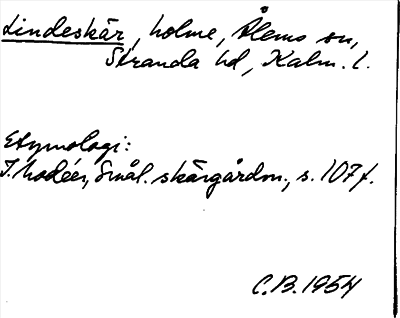 Lindeskär, holme, Ålems sn,
Stranda hd, Kalm. l.
Etymologi:
I. Modéer, Smål. skärgårdsn., s. 107 f.
C.B. 1954